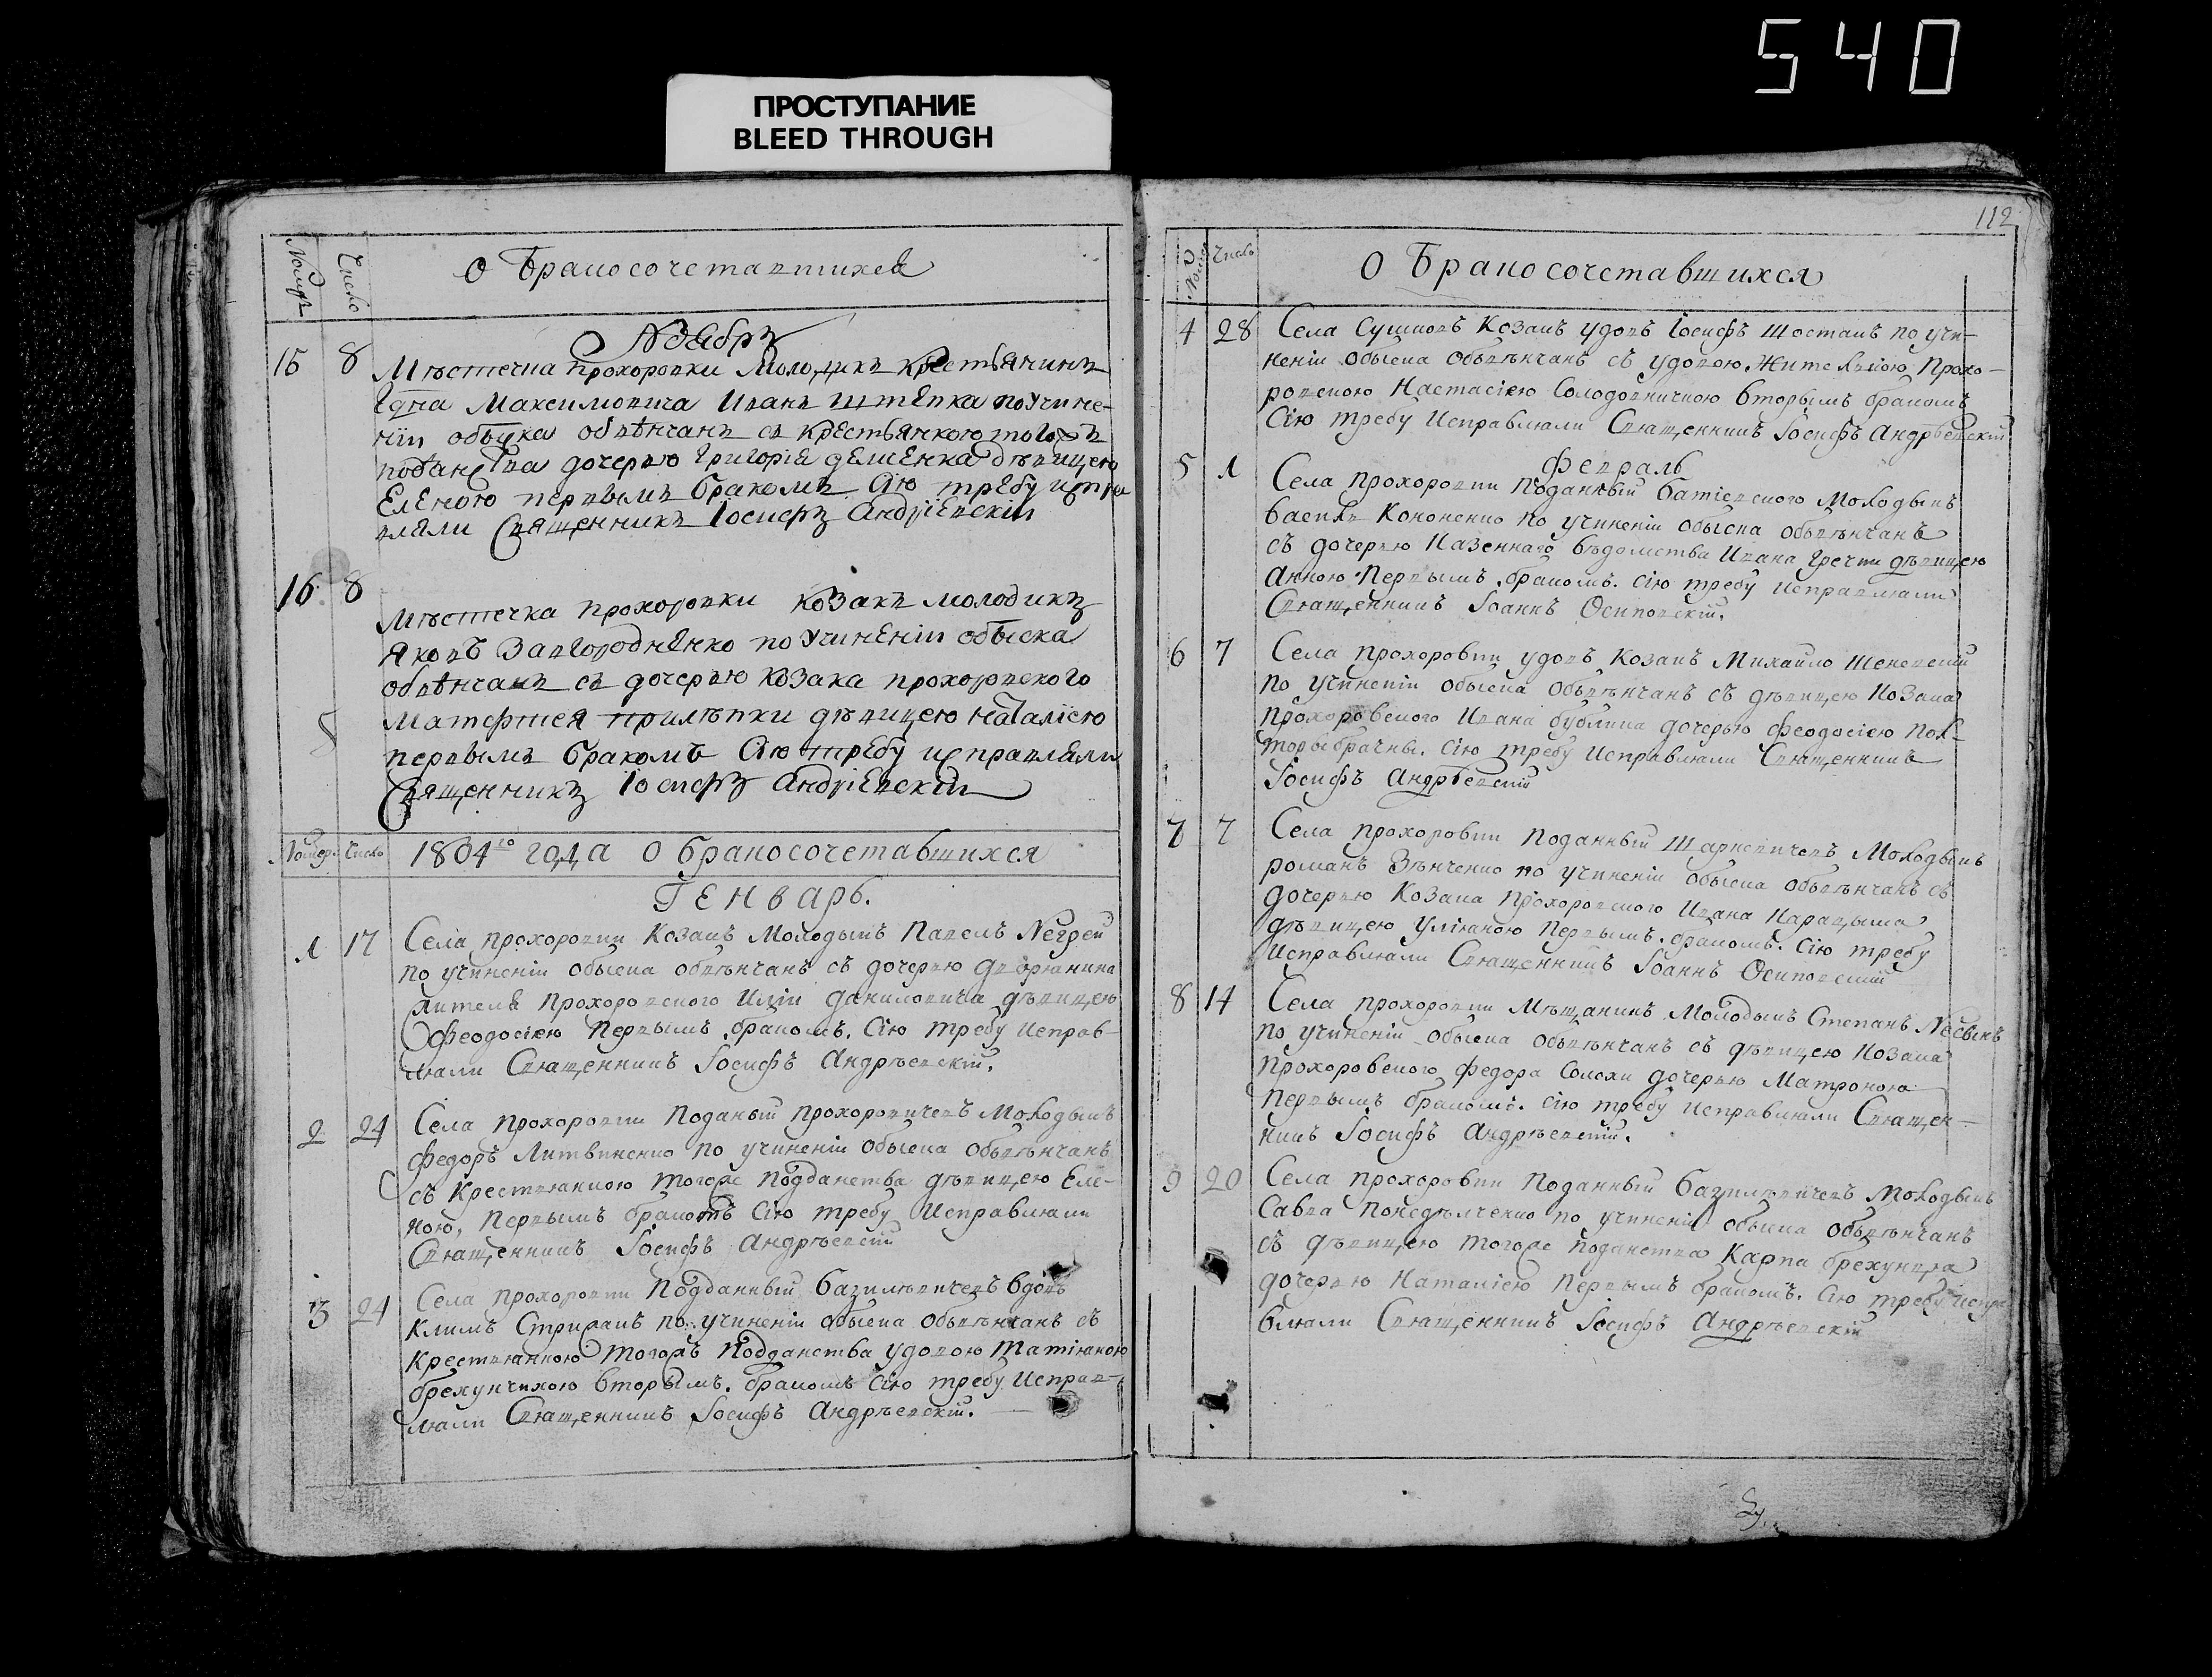 540
ПРОСТУПАНИЕ
BLEED THROUGH
Номеръ Число О Бракосочетавшихся
Ноябрь
15 8 Мѣстечка Прохоровки Молодикъ Крестьянинъ
Максимовича Иванъ Штепка по учине-
нїи обыска обвѣнчанъ съ крестьянкою тогожъ
поданства дочерью Григорія Демченка дѣвицею
Еленою первымъ бракомъ Сїю требу испра
вляли Священникъ Іосифъ Андріевскій
16 8 Мѣстечка Прохоровки козакъ молодикъ
Яковъ Завгородненко по учиненіи обыска
обвѣнчанъ съ дочерью козака прохоровского
Матфшея Прилѣпки дѣвицею Наталією
первымъ бракомъ Сїю требу исправляли
Священникъ Іосифъ Андріевскій
Номеръ Число 1804го года О бракосочетавшихся
Генварь.
1 17 Села Прохоровки Козакъ Молодыкъ Павелъ Негрей
по учиненіи обыска обвѣнчанъ съ дочерью дворянина
жителя Прохоровского Иліи Даниловича дѣвицею
Феодосіею Первымъ бракомъ. Сію требу Исправ-
ляли Священникъ Іосифъ Андрѣевскій.
2 24 Села Прохоровки Поданый Прохоровичевъ Молодыкъ
Федоръ Литвиненко по учиненіи обыска обвѣнчанъ
съ Крестьянкою тогожъ Подданства дѣвицею Еле-
ною, Первымъ бракомъ Сію требу Исправляли
Священникъ Іосифъ Андрѣевскій
3 24 Села Прохоровки Подданный Базилѣвичевъ вдовъ
Климъ Стрижакъ по учиненіи обыска обвѣнчанъ съ
Крестьянкою тогожъ Подданства удовою Татіяною
брехунчихою вторымъ. бракомъ Сію требу Исправ-
ляли Священникъ Іосифъ Андрѣевскій.
112
Номеръ Число О Бракосочетавшихся
4 28 Села Сушковъ Козакъ удовъ Іосифъ Шостакъ по учи-
неніи обыска обвѣнчанъ съ удовою Жителкою Прохо-
ровскою Настасіею Солодовничкою вторымъ бракомъ
Сію требу Исправляли Священникъ Іосифъ Андрѣевскій
Февраль
5 1 Села Прохоровки Поданный Молодыкъ
Василь Кононенко по учиненіи обыска обвѣнчанъ
съ дочерью Казеннаго вѣдомства Ивана Гречки дѣвицею
Анною Первымъ бракомъ. Сію требу Исправляли
Священникъ Іоаннъ Осиповскій.
6 7 Села Прохоровки удовъ Козакъ Михайло
по учиненіи обыска обвѣнчанъ съ дѣвицею Козака
Прохоровского Ивана бублика дочерью Феодосіею Пол-
торыбрачны. Сію требу Исправляли Священникъ
Іосифъ Андрѣевскій
7 7 Села Прохоровки Поданный Молодыкъ
Романъ Зѣнченко по учиненіи обыска обвѣнчанъ съ
дочерью Козака Прохоровского Ивана
дѣвицею Уліяною Первымъ. бракомъ. Сію требу
Исправляли Священникъ Іоаннъ Осиповскій
8 14 Села Прохоровки Мѣщанинъ Молодыкъ Степанъ
по учиненіи обыска обвѣнчанъ съ дѣвицею Козака
Прохоровского Федора Солохи дочерью Матроною
Первымъ бракомъ. Сію требу Исправляли Священ-
никъ Іосифъ Андрѣевскій.
9 20 Села Прохоровки Поданный Базилѣвичевъ Молодыкъ
Савва Понедѣлченко по учиненіи обыска обвѣнчанъ
съ дѣвицею тогожъ Поданства Карпа брехунца
дочерью Наталіею Первымъ бракомъ. Сію требу Испра
вляли Священникъ Іосифъ Андрѣевскій